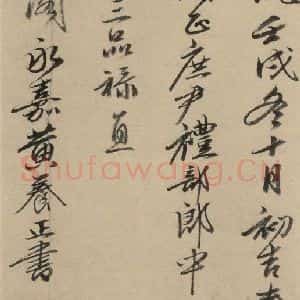 壬戌冬十月初吉
正庶尹禮部郎中
三品祿直
永嘉黃養正書
Shufawang.Cn